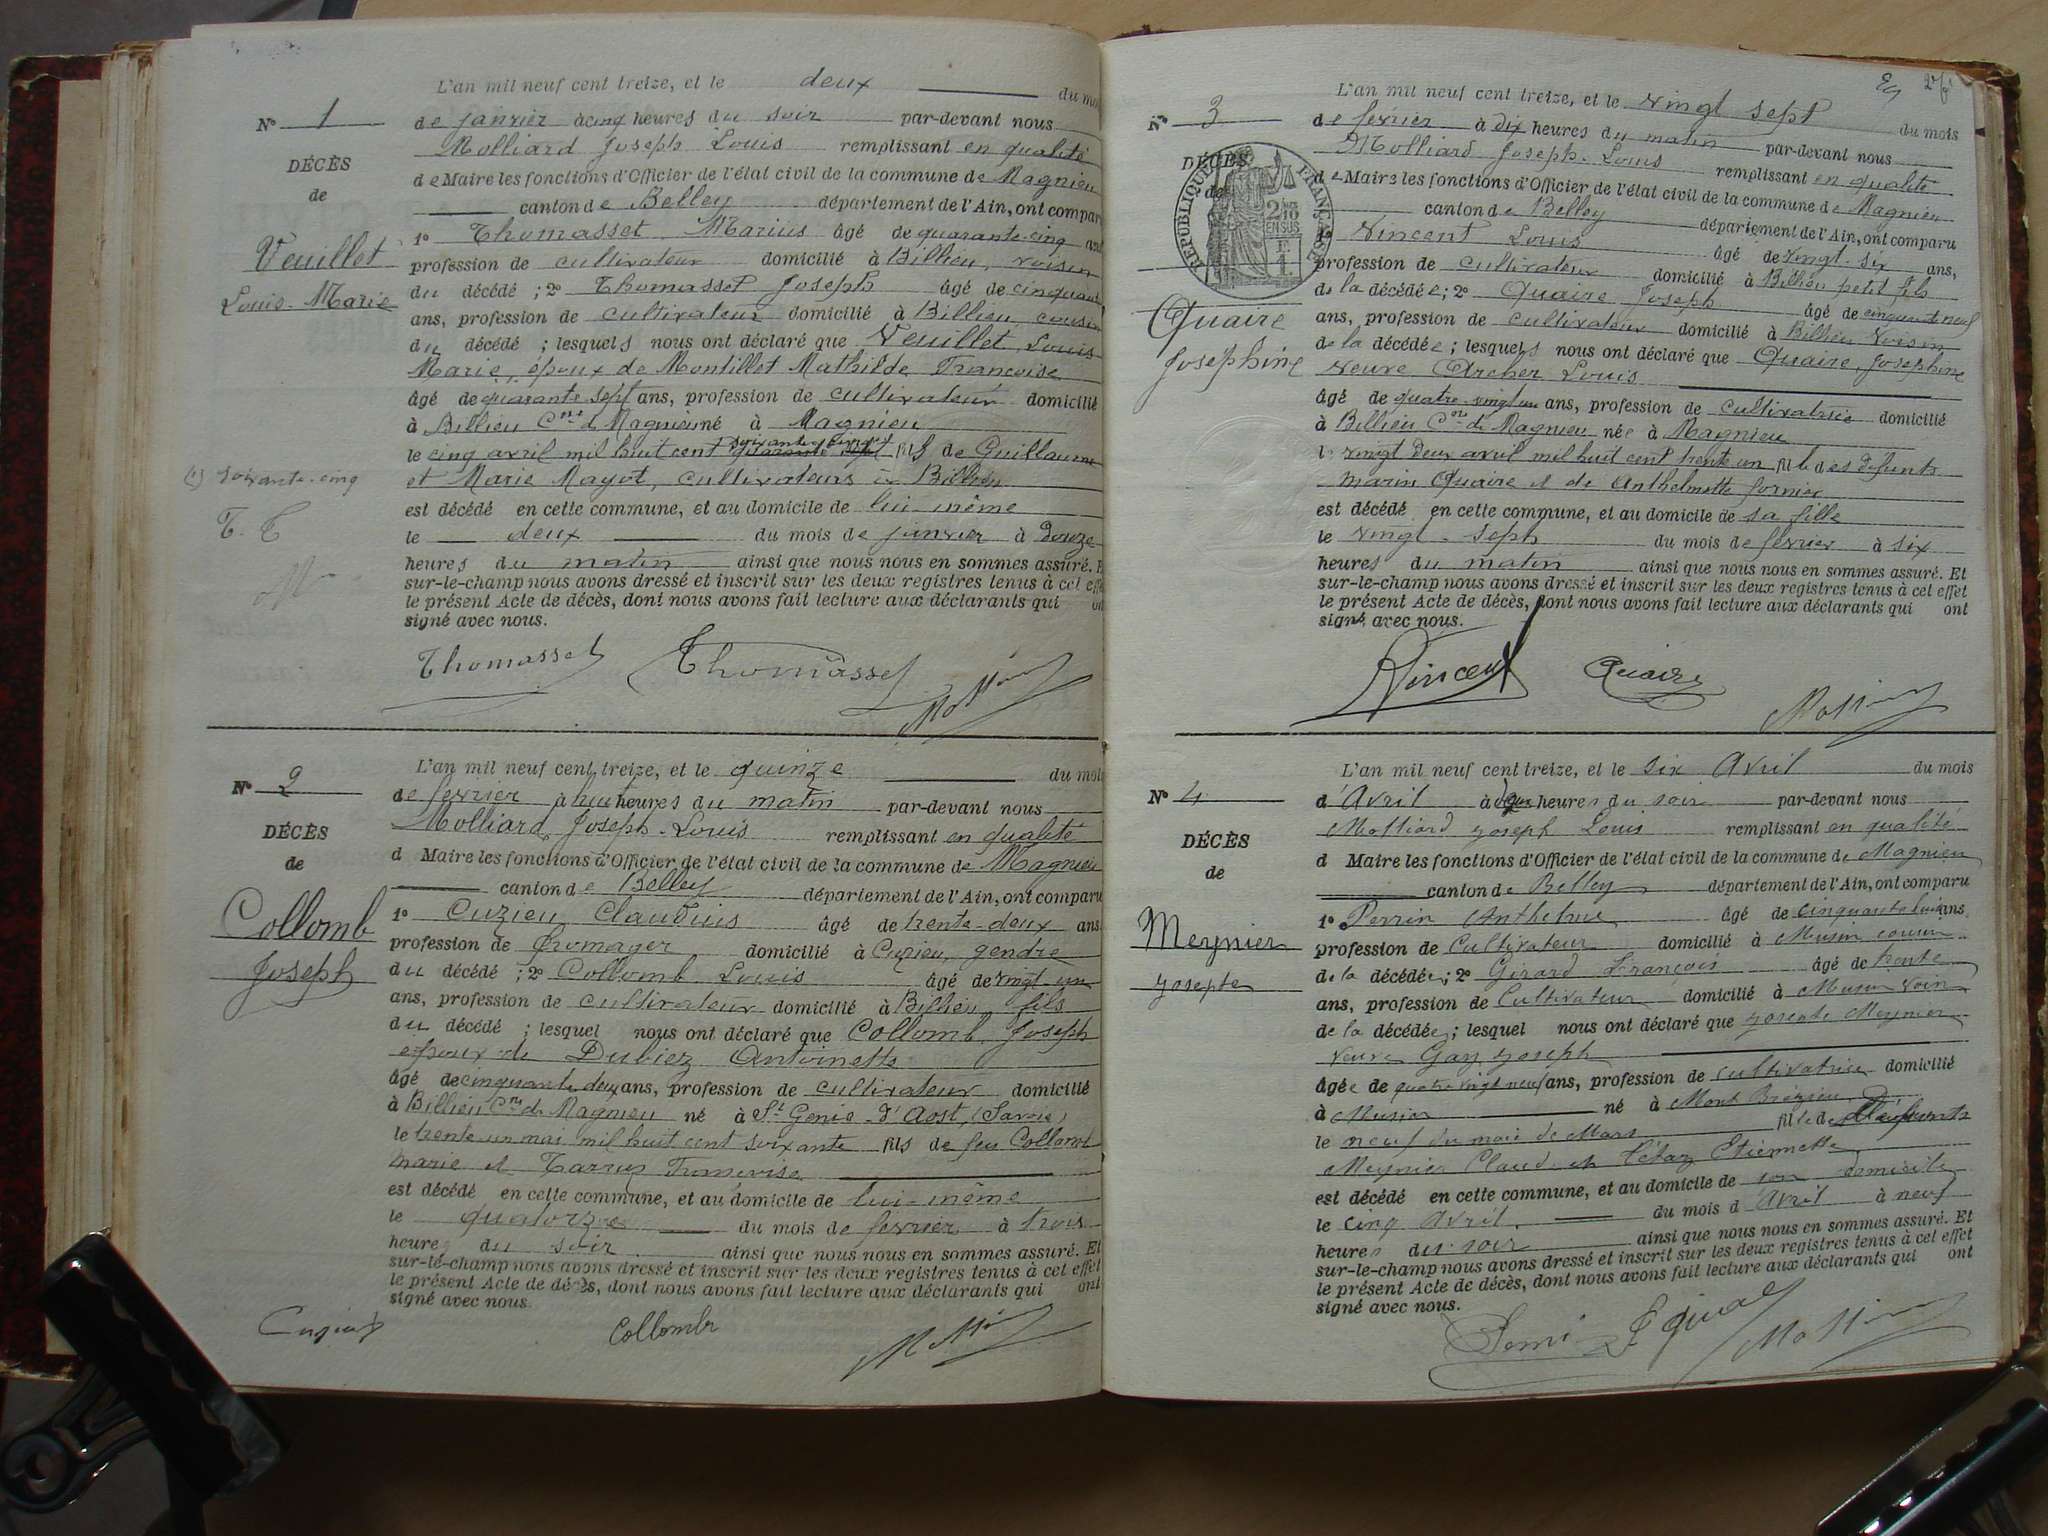 L'an mil neuf cent treize, et le deux du mois
N° 1
de janvier à cinq heures du soir par-devant nous
Molliard Joseph Louis remplissant en qualité
DÉCÈS
de Maire les fonctions d'Officier de l'état civil de la commune de Magnieu
de
canton de Belley département de l'Ain, ont comparu
1° Thomasset Marius âgé de quarante-cinq ans
Veuillet
profession de cultivateur domicilié à Billieu, voisin
Louis-Marie
du décédé ; 2° Thomasset Joseph âgé de cinquante
ans, profession de cultivateur domicilié à Billieu, cousin
du décédé ; lesquels nous ont déclaré que Veuillet, Louis
Marie, époux de Montillet Mathilde Françoise
âgé de quarante sept ans, profession de cultivateur domicilié
à Billieu Cne de Magnieu né à Magnieu
le cinq avril mil huit cent fils de Guillaume
(1) soixante-cinq
et Marie Mayot, cultivateurs à Billieu
est décédé en cette commune, et au domicile de lui-même
T. T
le deux du mois de janvier à douze
heures du matin ainsi que nous nous en sommes assuré. Et
M
sur-le-champ nous avons dressé et inscrit sur les deux registres tenus à cet effet
le présent Acte de décès, dont nous avons fait lecture aux déclarants qui ont
signé avec nous.
Thomasset Thomasset
L'an mil neuf cent treize, et le quinze du mois
N° 2
de février à huit heures du matin par-devant nous
Molliard, Joseph-Louis remplissant en qualité
DÉCÈS
d Maire les fonctions d'Officier de l'état civil de la commune de Magnieu
de
canton de Belley département de l'Ain, ont comparu
1° Cuzieu Claudius âgé de trente-deux ans
Collomb
profession de fromager domicilié à Cuzieu, gendre
Joseph
du décédé ; 2° Collomb Louis âgé de vingt un
ans, profession de cultivateur domicilié à Billieu fils
du décédé ; lesquel nous ont déclaré que Collomb, Joseph
époux de Dubiez Antoinette
âgé de cinquante deux ans, profession de cultivateur domicilié
à Billieu Cne de Magnieu né à St Genis-d'Aost, (Savoie)
le trente un mai mil huit cent soixante fils de feu Collomb
Marie et Françoise
est décédé en cette commune, et au domicile de lui-même
le quatorze du mois de février à trois
heures du soir ainsi que nous nous en sommes assuré. Et
sur-le-champ nous avons dressé et inscrit sur les deux registres tenus à cet effet
le présent Acte de décès, dont nous avons fait lecture aux déclarants qui ont
signé avec nous.
Collomb
L'an mil neuf cent treize, et le vingt sept du mois
N° 3
de février à dix heures du matin par-devant nous
Molliard Joseph-Louis remplissant en qualité
DÉCÈS
de Maire les fonctions d'Officier de l'état civil de la commune de Magnieu
de
canton de Belley département de l'Ain, ont comparu
RÉPUBLIQUE FRANÇAISE
2/10 EN SUS
1° Vincent Louis âgé de vingt-six ans,
profession de cultivateur domicilié à Billieu petit fils
de la décédée ; 2° Quaire Joseph âgé de cinquante neuf
Quaire
ans, profession de cultivateur domicilié à Billieu voisin
Josephine
de la décédée ; lesquels nous ont déclaré que Quaire, Josephine
veuve Archer Louis
âgé de quatre-vingt un ans, profession de cultivatrice domicilié
à Billieu Cne de Magnieu née à Magnieu
le vingt deux avril mil huit cent trente un fille des défunts
Marin Quaire et de Anthelmette fornier
est décédé en cette commune, et au domicile de sa fille
le vingt-sept du mois de février à six
heures du matin ainsi que nous nous en sommes assuré. Et
sur-le-champ nous avons dressé et inscrit sur les deux registres tenus à cet effet
le présent Acte de décès, dont nous avons fait lecture aux déclarants qui ont
signé avec nous.
Vincent Quaire
L'an mil neuf cent treize, et le six Avril du mois
N° 4
d'Avril à heures du soir par-devant nous
Molliard Joseph Louis remplissant en qualité
DÉCÈS
d Maire les fonctions d'Officier de l'état civil de la commune de Magnieu
de
canton de Belley département de l'Ain, ont comparu
1° Perrin Anthelme âgé de cinquante huit ans
Meynier
profession de Cultivateur domicilié à Musin cousin
Josephte
de la décédée ; 2° Girard François âgé de trente
ans, profession de Cultivateur domicilié à Musin voisin
de la décédée ; lesquel nous ont déclaré que Josephte Meynier
veuve Gay Joseph
âgée de quatre vingt neuf ans, profession de cultivatrice domicilié
à Musin né à
le neuf du mois de Mars fille de défunts
Meynier Claude et Etiennette
est décédé en cette commune, et au domicile de son domicile
le cinq Avril du mois d'Avril à neuf
heures du soir ainsi que nous nous en sommes assuré. Et
sur-le-champ nous avons dressé et inscrit sur les deux registres tenus à cet effet
le présent Acte de décès, dont nous avons fait lecture aux déclarants qui ont
signé avec nous.